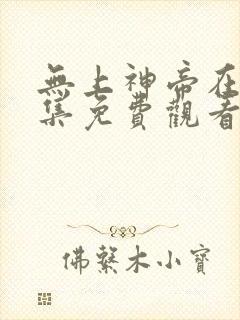 無上神帝在
集免費觀看
佛繫木小寶